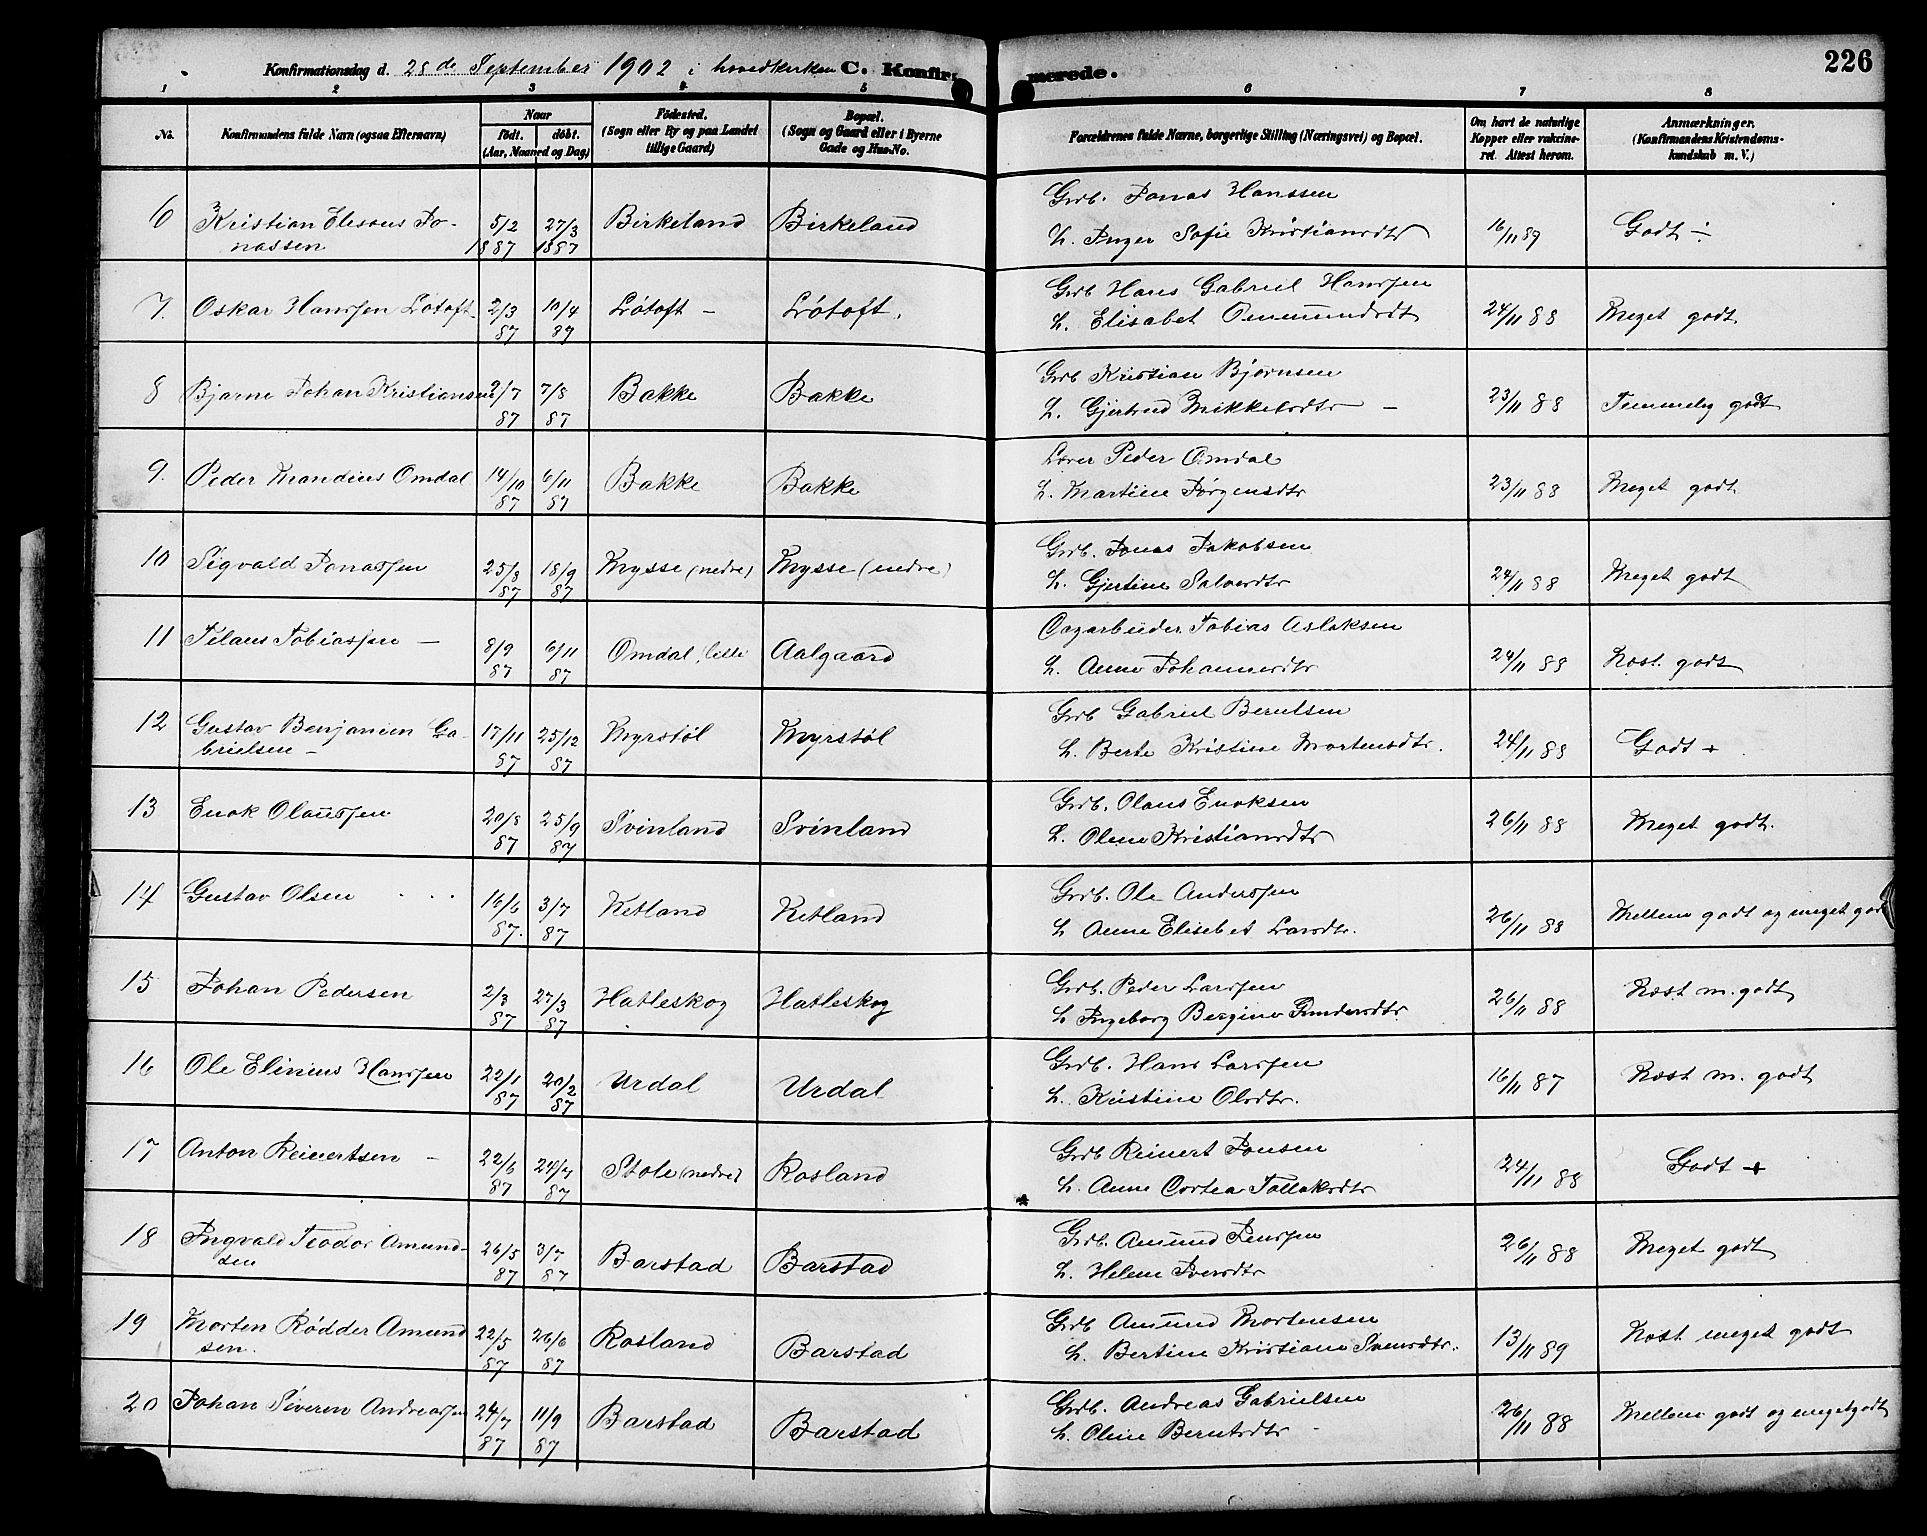 Konfirmationsdag d. 28de September 1902 i hovedkirken C. Konfirmerede. 226
1 2 3 4 5 6 7 8
No. Konfirmandens fulde Navn (ogsaa Efternavn) Naar født. døbt. (Aar, Maaned og Dag) Fødested. (Sogn eller By og paa Landet tillige Gaard) Bopæl. (Sogn og Gaard eller i Byerne Gade og Hus-No. Forældrenes fulde Navne, borgerlige Stilling (Næringsvei) og Bopæl. Om havt de naturlige Kopper eller vakcineret. Attest herom. Anmærkninger. (Konfirmandens Kristendomskundskab m. V.)
6 Kristian Elesæus Jonassen 5/2 1887 27/3 1887 Birkeland Birkeland Grdb. Jonas Hanssen
H. Inger Sofie Kristiansdtr 16/11 89 Godt ÷
7. Oskar Hanssen Løtoft 2/3 87 10/4 87 Løtoft – Løtoft. Grdb Hans Gabriel Hanssen
H. Elisabet Ommundsdt 24/11 88 Meget godt
8 Bjarne Johan Kristiansen 2/7 87 7/8 87 Bakke Bakke Grdb Kristian Bjørnsen
H. Gjertrud Mikkelsdtr – 23/11 88 Temmelig godt
9. Peder Mandius Omdal 14/10 87 6/11 87 Bakke Bakke Lærer Peder Omdal
H. Martine Jørgensdtr 23/11 88 Meget godt
10 Sigvald Jonassen 25/8 87 18/9 87 Mysse (nedre) Mysse (nedre) Grdb. Jonas Jakobsen
H. Gjertine Salvesdtr 24/11 88 Meget godt
11 Tilaus Tobiassen – 8/9 87 6/11 87 Omdal, lille Aalgaard Dagarbeider Tobias Aslaksen
H. Anne Johannesdtr 24/11 88 Næst. godt
12 Gustav Benjamin Gabrielsen – 17/11 87 25/12 87 Myrstøl Myrstøl Grdb Gabriel Berntsen
H. Berte Kristine Mortensdtr. 24/11 88 Godt +
13 Enok Olaussen 20/8 87 25/9 87 Svinland Svinland Grdb. Olaus Enoksen
H. Oline Kristiansdtr 26/11 88 Meget godt.
14 Gustav Olsen 16/6 87. 3/7 87 Ketland Ketland Grdb. Ole Anderssen
H Anne Elisabet Larsdtr. 26/11 88 Mellem godt og meget godt
15 Johan Pedersen 2/3 87 27/3 87 Hatleskog Hatleskog Grdb. Peder Larssen
H Ingeborg Bergine Gundersdtr 26/11 88 Næst m. godt
16 Ole Elinius Hanssen 22/1 87 20/2 87 Urdal Urdal Grdb. Hans Larssen
H. Kristine Olsdtr. 16/11 87 Næst m. godt
17 Anton Reinertsen – 22/6 87 24/7 87 Stole (nedre) Rosland Grdb Reinert Jonsen
H. Anne Cortea Tallaksdtr 24/11 88 Godt +
18 Ingvald Teodor Amundsen 26/5 87 3/7 87 Barstad Barstad Grdb. Amund Jenssen
H. Helene Iversdtr 26/11 88 Meget godt
19 Morten Rødder Amundsen. 22/5 87 26/6 87 Rosland Barstad Grdb Amund Mortensen
H. Bertine Kristiane Svensdtr. 13/11 89 Næst meget godt
20 Johan Severin Andreassen 24/7 87 11/9 87 Barstad Barstad Grdb. Andreas Gabrielsen
H. Oline Berntsdtr 26/11 88 Mellem godt og meget godt